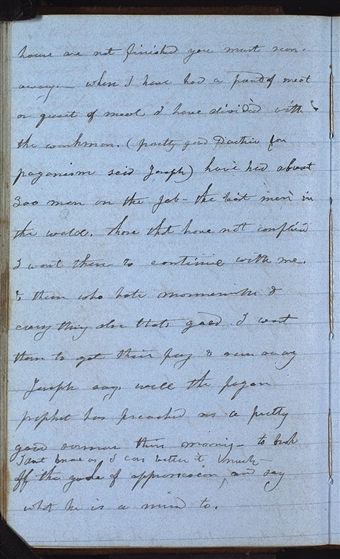 house are not finished you must run
away— when I have had a pound of meat
or quart of meal I have divided with
the workmen. (pretty good Doctrine for
paganism said Joseph) have had about
300 men on the Job— the best men in
the world. those that have not complained
I want them to continue with me.
& them who hate mormonism &
every thing else thats good. I want
them to get their pay & run away
Joseph says well the pagan
prophet has preached us a pretty
good sermon this morning— to but
I dont know as I can better it much—
off the yoke of oppression, and say
what he is a mind to.